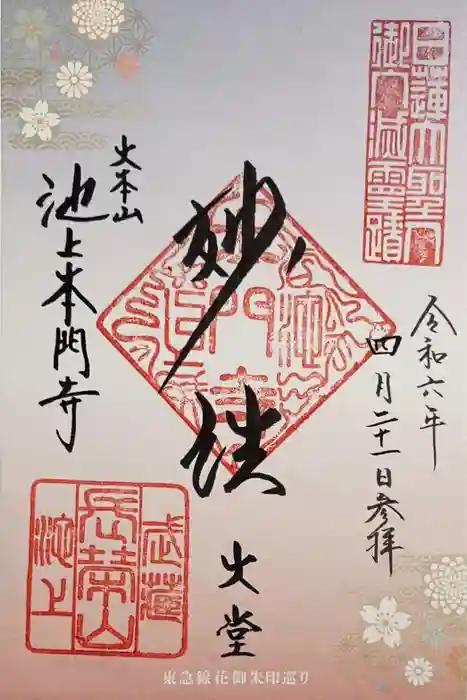 日蓮大聖人
御入滅靈蹟
令和六年
四月二十一日参拝
妙法
大堂
大本山
池上本門寺
武蔵
長榮山
池上
東急線花御朱印巡り